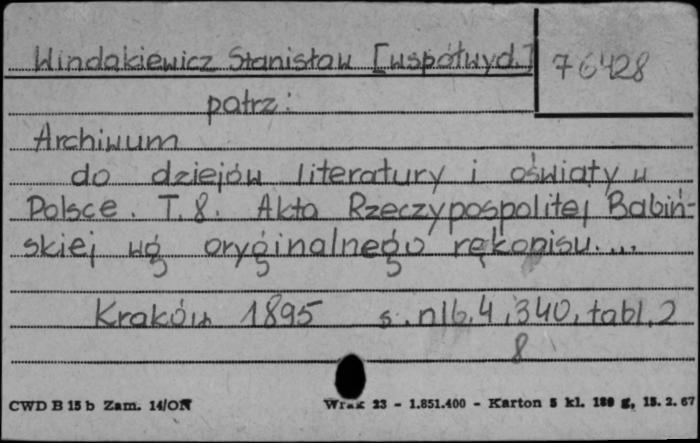 Windakiewicz Stanisław [współwyd.] 76428
patrz:
Archiwum
do dziejów literatury i oświaty w
Polsce. T. 8. Akta Rzeczypospolitej Babiń-
skiej wg oryginalnego rękopisu....
Kraków 1895 s. nlb. 4, 340, tabl. 2
8
CWD B 15 b Zam. 14/ON 23 - 1.851.400 - Karton 5 kl. g, 15. 2. 67